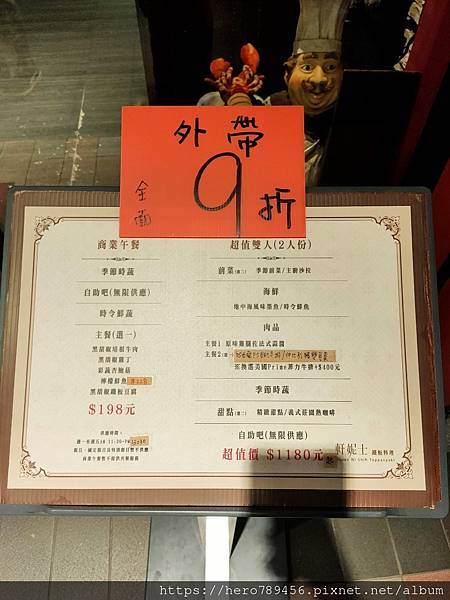 外帶
全面
9折
商業午餐
季節時蔬
自助吧(無限供應)
時令鮮蔬
主餐(選一)
黑胡椒培根牛肉
黑胡椒雞丁
彩蔬杏鮑菇
檸檬鮮魚
黑胡椒鐵板豆腐
$198元
供應時間：
假日、國定假日及特別假日恕不供應
超值雙人(2人份)
前菜(選二) 季節前菜/主廚沙拉
海鮮
地中海風味墨魚/時令鮮魚
肉品
主餐1 原味雞腿佐法式蒜醬
主餐2
※換選美國Prime菲力牛排+$400元
季節時蔬
甜點(選二) 精緻甜點/義式莊園熱咖啡
自助吧(無限供應)
超值價 $1180元
軒妮士 鐵板料理
https://hero789456.pixnet.net/album